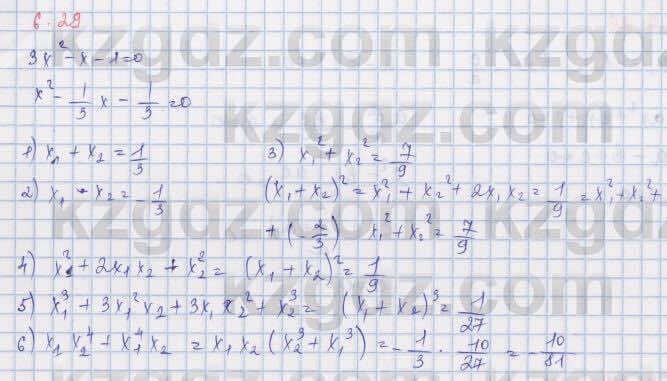 6.29
3x² - x - 1 = 0
x² - 1/3 x - 1/3 = 0
1) x₁ + x₂ = 1/3
2) x₁ · x₂ = - 1/3
3) x₁² + x₂² = 7/9
(x₁ + x₂)² = x₁² + x₂² + 2x₁x₂ = 1/9 = x₁² + x₂² +
+ (- 2/3) x₁² + x₂² = 7/9
4) x₁² + 2x₁x₂ + x₂² = (x₁ + x₂)² = 1/9
5) x₁³ + 3x₁²x₂ + 3x₁x₂² + x₂³ = (x₁ + x₂)³ = 1/27
6) x₁x₂⁴ + x₁⁴x₂ = x₁x₂(x₂³ + x₁³) = - 1/3 · 10/27 = - 10/81
kzgdz.com